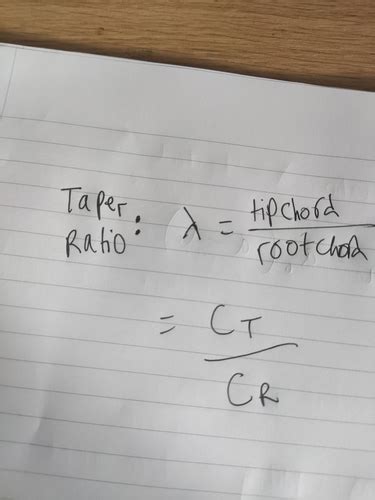 Taper
Ratio : λ = tip chord / root chord
= C_T / C_R